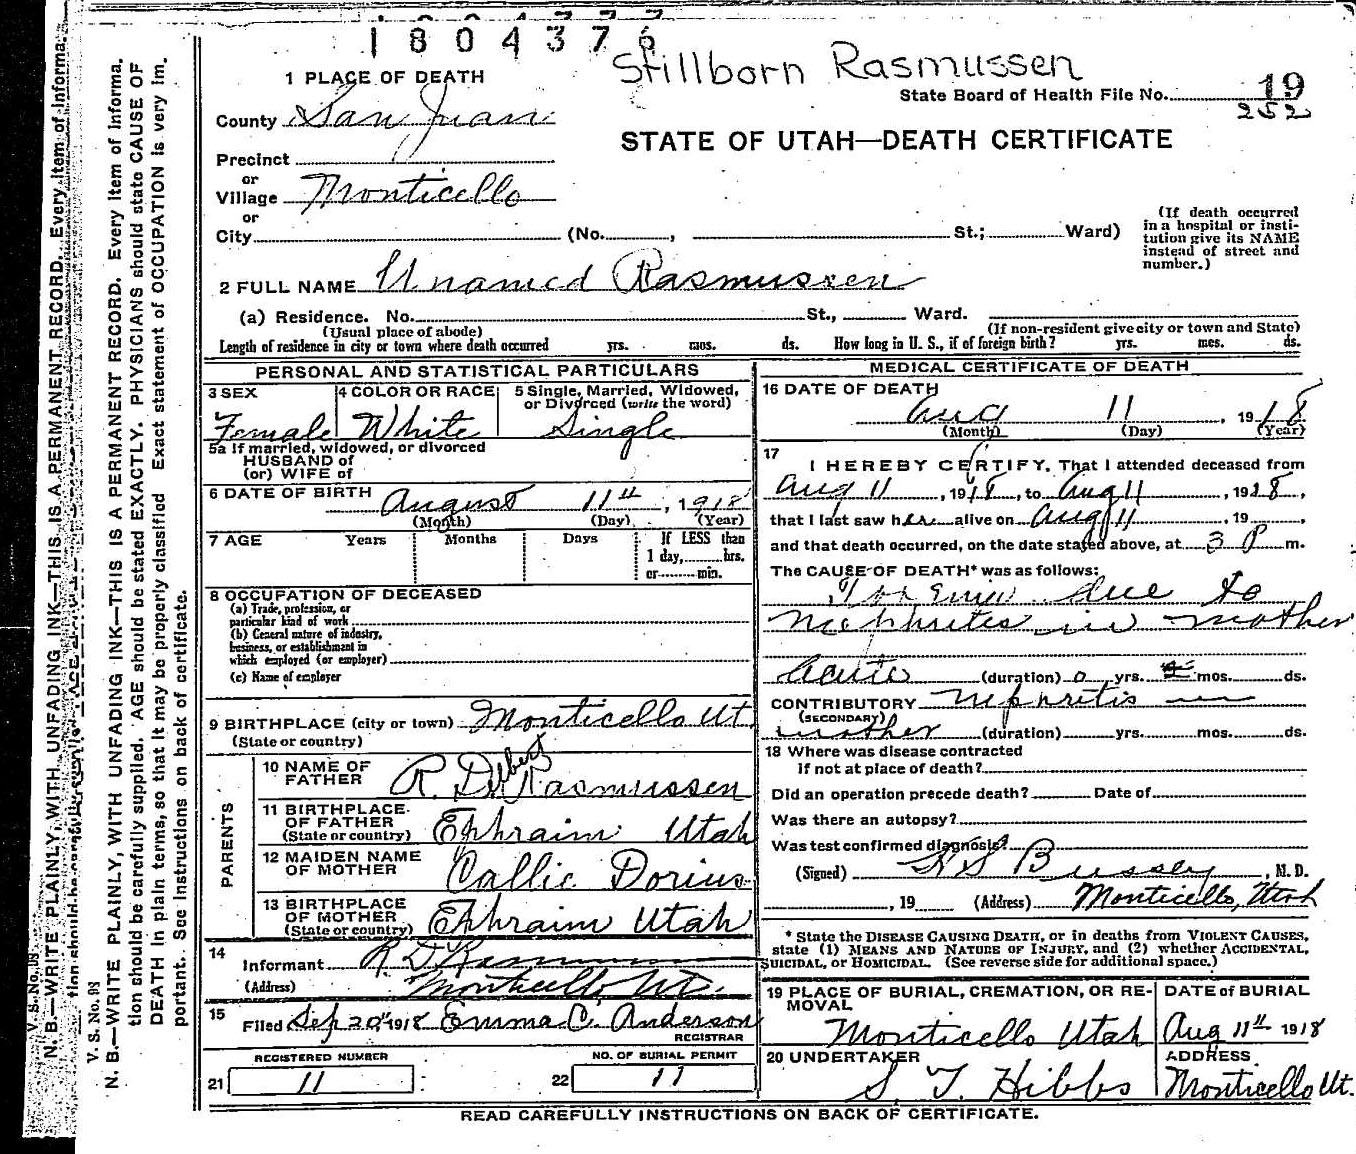 1804376
Stillborn Rasmussen
1 PLACE OF DEATH
State Board of Health File No. 19
252
County San Juan
STATE OF UTAH—DEATH CERTIFICATE
Precinct
or
Village Monticello
or
City (No. , St.; Ward)
(If death occurred
in a hospital or insti-
tution give its NAME
instead of street and
number.)
2 FULL NAME Unamed Rasmussen
(a) Residence. No. St., Ward.
(Usual place of abode) (If non-resident give city or town and State)
Length of residence in city or town where death occurred yrs. mos. ds. How long in U. S., if of foreign birth? yrs. mos. ds.
PERSONAL AND STATISTICAL PARTICULARS
3 SEX 4 COLOR OR RACE 5 Single, Married, Widowed,
or Divorced (write the word)
Female White Single
5a If married, widowed, or divorced
HUSBAND of
(or) WIFE of
6 DATE OF BIRTH August 11th, 1918
(Month) (Day) (Year)
7 AGE Years Months Days If LESS than
1 day, hrs.
or min.
8 OCCUPATION OF DECEASED
(a) Trade, profession, or
particular kind of work
(b) General nature of industry,
business, or establishment in
which employed (or employer)
(c) Name of employer
9 BIRTHPLACE (city or town) Monticello Ut.
(State or country)
PARENTS
10 NAME OF
FATHER R. Delbert Rasmussen
11 BIRTHPLACE
OF FATHER
(State or country) Ephraim Utah
12 MAIDEN NAME
OF MOTHER Callie Dorius
13 BIRTHPLACE
OF MOTHER
(State or country) Ephraim Utah
14
Informant R. D. Rasmussen
(Address) Monticello, Ut.
15
Filed Sep 20th 1918 Emma C. Anderson
REGISTRAR
REGISTERED NUMBER NO. OF BURIAL PERMIT
21 11 22 11
MEDICAL CERTIFICATE OF DEATH
16 DATE OF DEATH
Aug 11, 1918
(Month) (Day) (Year)
17
I HEREBY CERTIFY, That I attended deceased from
Aug 11, 1918, to Aug 11, 1918,
that I last saw her alive on Aug 11, 19 ,
and that death occurred, on the date stated above, at 3 P m.
The CAUSE OF DEATH* was as follows:
due to
Nephrites in mother
Acute (duration) 0 yrs. mos. ds.
CONTRIBUTORY Nephritis in
(SECONDARY)
mother (duration) yrs. mos. ds.
18 Where was disease contracted
if not at place of death?
Did an operation precede death? Date of
Was there an autopsy?
Was test confirmed diagnosis?
(Signed) Bussey, M. D.
, 19 (Address) Monticello, Utah
* State the DISEASE CAUSING DEATH, or in deaths from VIOLENT CAUSES,
state (1) MEANS AND NATURE OF INJURY, and (2) whether ACCIDENTAL,
SUICIDAL, or HOMICIDAL. (See reverse side for additional space.)
19 PLACE OF BURIAL, CREMATION, OR RE-
MOVAL
Monticello Utah
DATE of BURIAL
Aug 11th 1918
20 UNDERTAKER
S. T. Hibbs
ADDRESS
Monticello Ut.
READ CAREFULLY INSTRUCTIONS ON BACK OF CERTIFICATE.
V. S. No. 98
N. B.—WRITE PLAINLY, WITH UNFADING INK—THIS IS A PERMANENT RECORD. Every item of informa-
tion should be carefully supplied. AGE should be stated EXACTLY. PHYSICIANS should state CAUSE OF
DEATH in plain terms, so that it may be properly classified. Exact statement of OCCUPATION is very im-
portant. See instructions on back of certificate.
V. S. No. 98
N. B.—WRITE PLAINLY, WITH UNFADING INK—THIS IS A PERMANENT RECORD. Every item of informa-